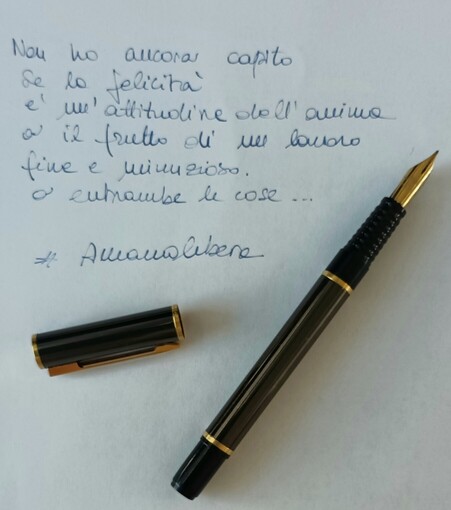 Non ho ancora capito
se la felicità
è un'attitudine dell'anima
o il frutto di un lavoro
fine e minuzioso.
o entrambe le cose ...
# Amanolibera